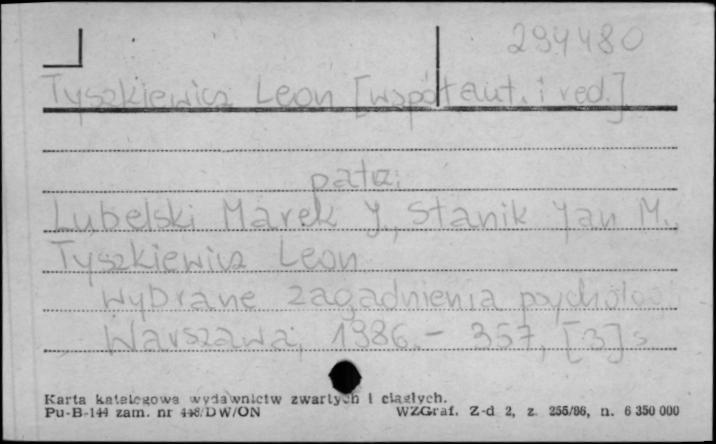 294480
Tyszkiewicz Leon [współaut. i red.]
patrz:
Lubelski Marek J., Stanik Jan M.,
Tyszkiewicz Leon
Wybrane zagadnienia psycholog
Warszawa, 1986. - 357, [3] s
Karta katalogowa wydawnictw zwartych i ciągłych.
Pu-B-144 zam. nr 448/DW/ON WZGraf. Z-d 2, z. 255/86, n. 6 350 000